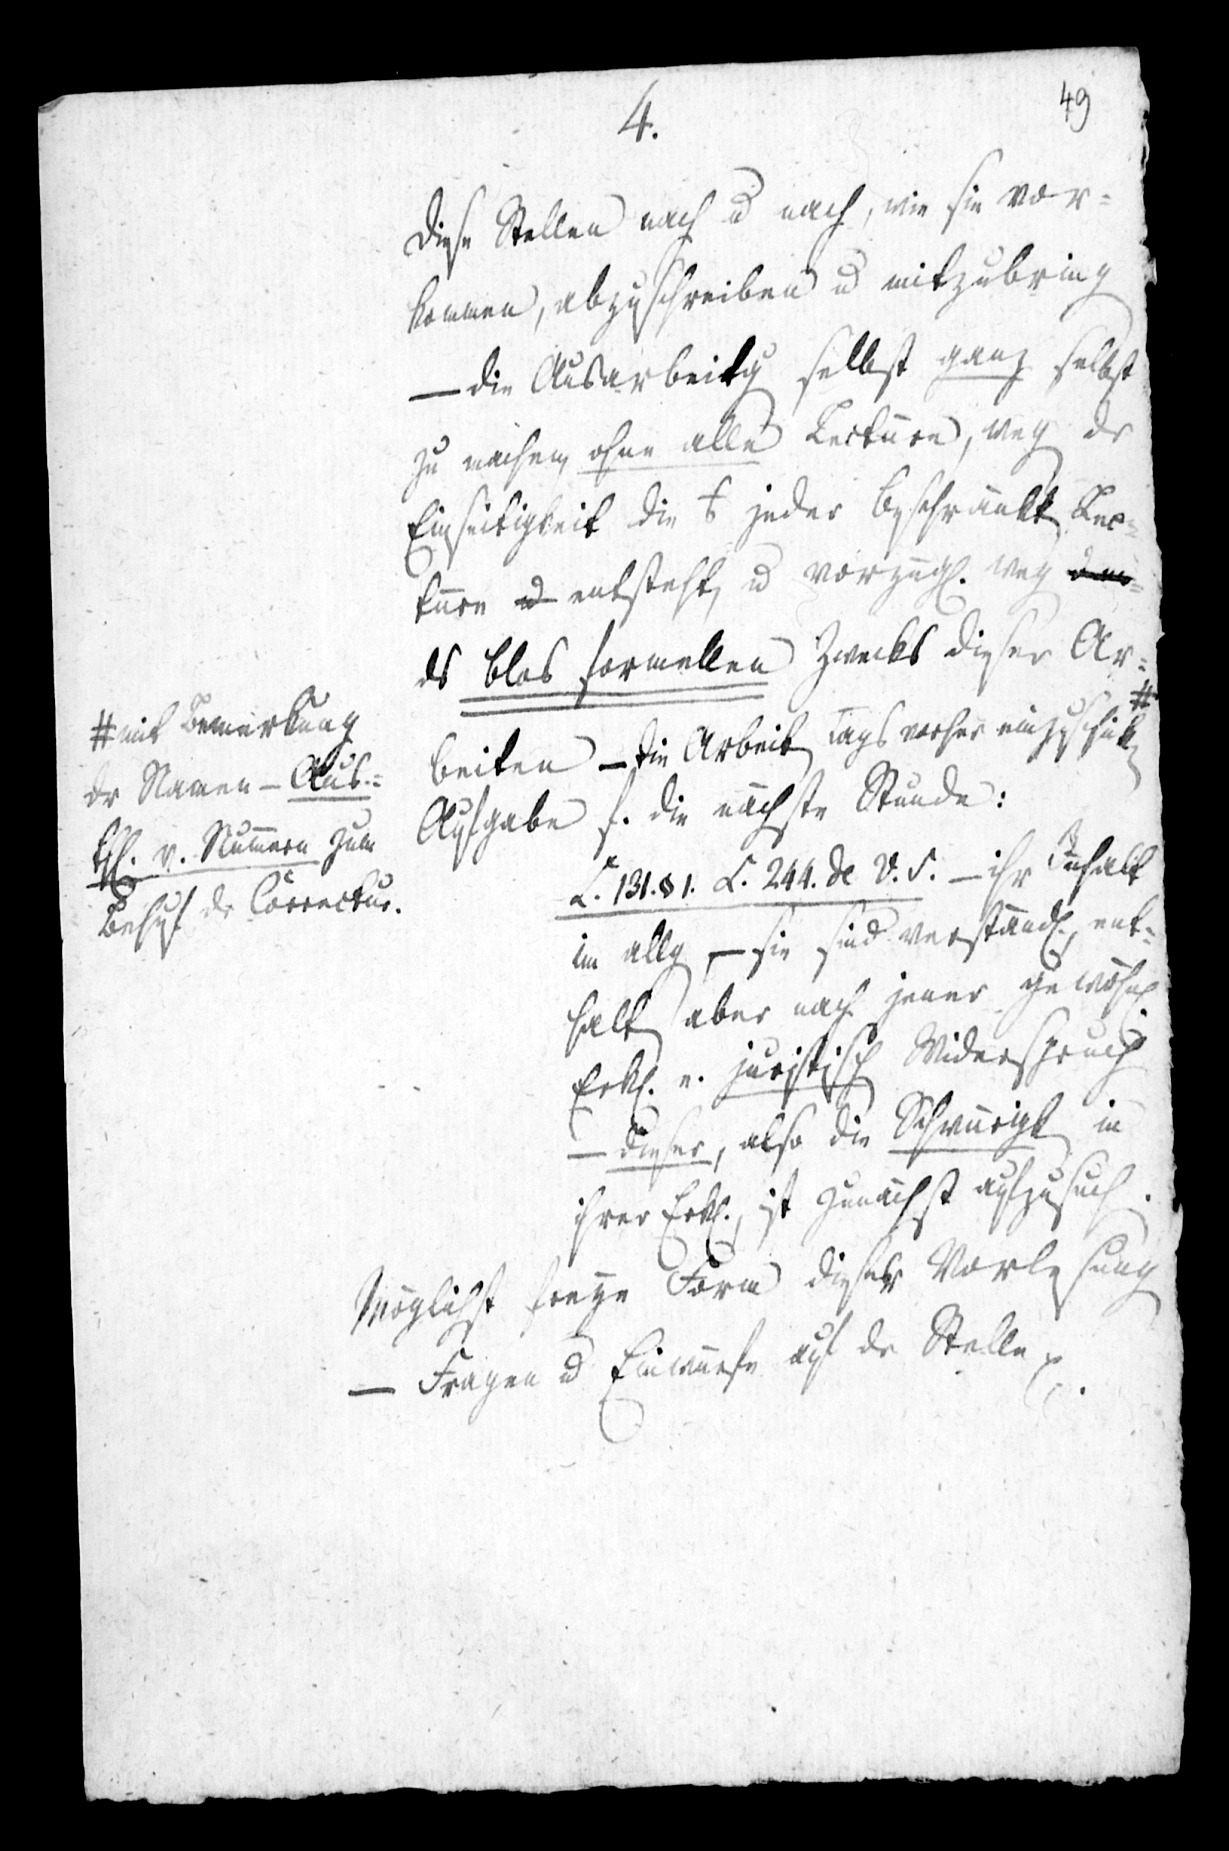 49
4.
diese Stellen nach u nach, wie sie vor=
kommen, abzuschreiben u mitzubring
— die Ausarbeitg selbst ganz selbst
zu machen, ohne alle Lecture, weg dr
Einseitigkeit die jeder beschränkt Lec=
ture u entsteht, u vorzügl. weg
ds blos formellen Zwecks dieser Ar=
beiten — die Arbeit Tags vorher einzuschick #
Aufgabe f. die nächste Stunde:
L. 131. § 1. L. 244. de V. S. — ihr Inhalt
im allg — sie sind verständl., ent=
halt aber nach jener gewöhnl.
Erkl. e. juristisch Widerspruch
— dieser, also die Schwürigk in
ihrer Erkl., ist zunächst aufzusuch.
Möglichst freye Form dieser Vorlesung
— Fragen u Einwürfe auf dr Stelle
# mit Bemerkung
dr Namen — Aus=
thl. v. Nummern zum
Behuf dr Correctur.